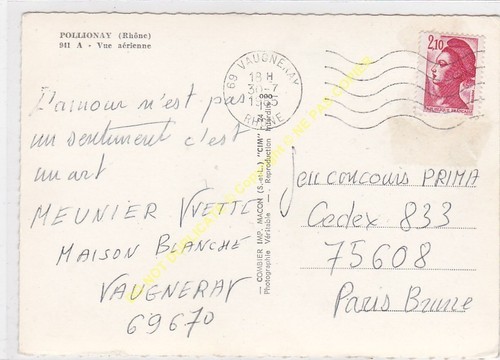 POLLIONAY (Rhône)
941 A - Vue aérienne
69 VAUGNERAY
18 H
30-7
RHÔNE
2,10
L'amour n'est pas
un sentiment c'est
un art
MEUNIER YVETTE
MAISON BLANCHE
VAUGNERAY
69670
COMBIER IMP. MACON (S.-et-L.) "CIM"
Photographie Véritable - Reproduction Interdite
Jeu concours PRIMA
Cedex 833
75608
Paris Brune